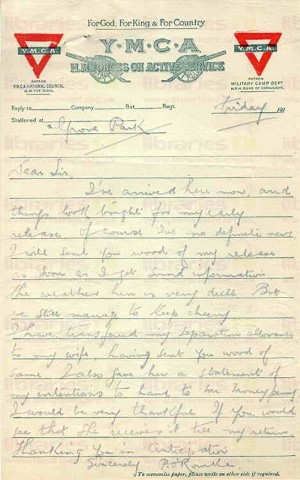 For God, For King & For Country
Y.M.C.A
Y.M.C.A
Y.M.C.A
H.M. FORCES ON ACTIVE SERVICE
PATRON
Y.M.C.A. NATIONAL COUNCIL
H.M. THE KING.
PATRON
MILITARY CAMP DEPT
H.R.H. DUKE OF CONNAUGHT.
Reply to Company Bat. Regt. Friday 191
Stationed at Grove Park
Dear Sir,
I've arrived here now, and
things look bright for my early
release. Of course I've no definite news
I will send you word of my release
as soon as I get sound information
The weather here is very dull. But
we still manage to keep cheery.
I have transferred my separation allowance
to my wife having sent you word of
same. I also gave her a statement of
my intentions to hand to Mr.
I would be very thankful if you would
see that she receives it till my return
Thanking you in anticipation
Sincerely P. O'Rourke
To economise paper, please write on other side, if required.
libraries